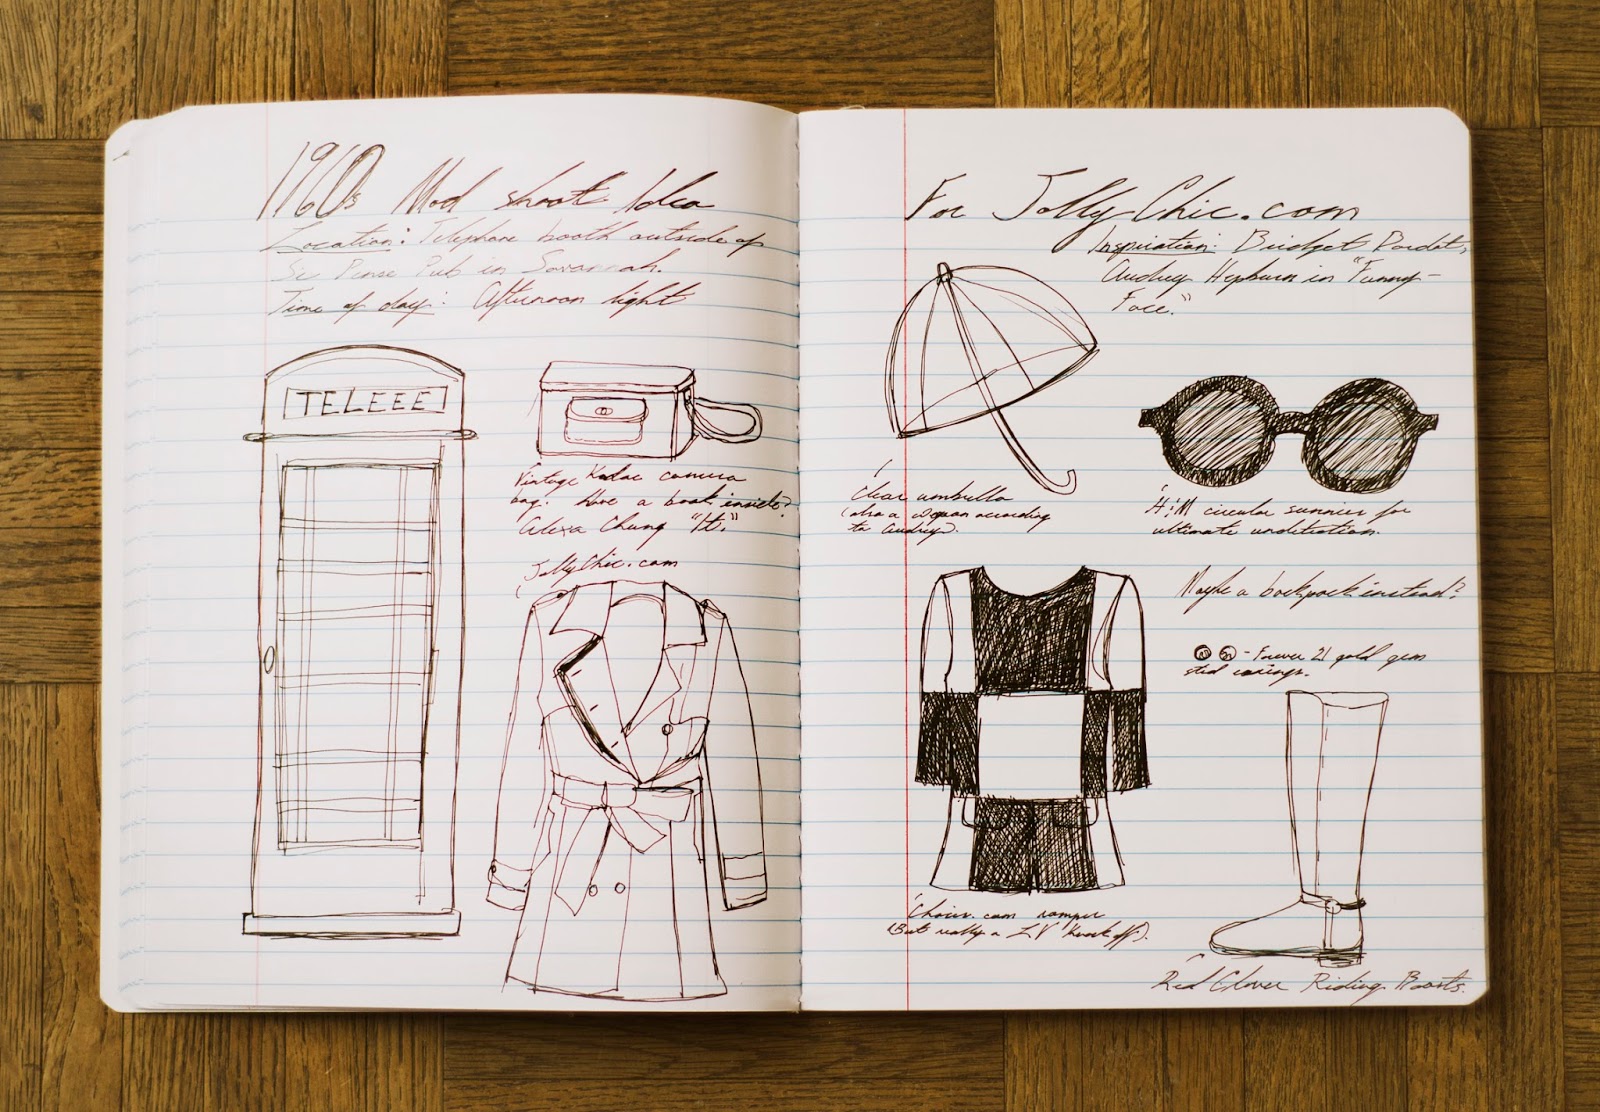 1960s Mod shoot Idea
Location: Telephone booth outside of
Six Pence Pub in Savannah.
Time of day: Afternoon light
TELEEE
Vintage Kodac camera
bag. Have a book inside?
Alexa Chung "It."
JollyChic.com
For JollyChic.com
Inspiration: Bridget Bardot,
Audrey Hepburn in "Funny-
Face."
Clear umbrella
(also a weapon according
to Audrey).
H&M circular sunnies for
ultimate
Maybe a backpack instead?
- Forever 21 gold gem
stud earrings.
Choies.com romper
(But really a LV knock off).
Red Clover Riding Boots.